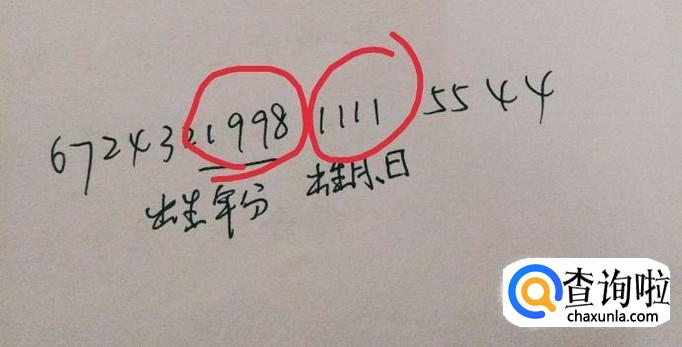 672432199811115544
出生年份 出生月、日
查询啦
chaxunla.com